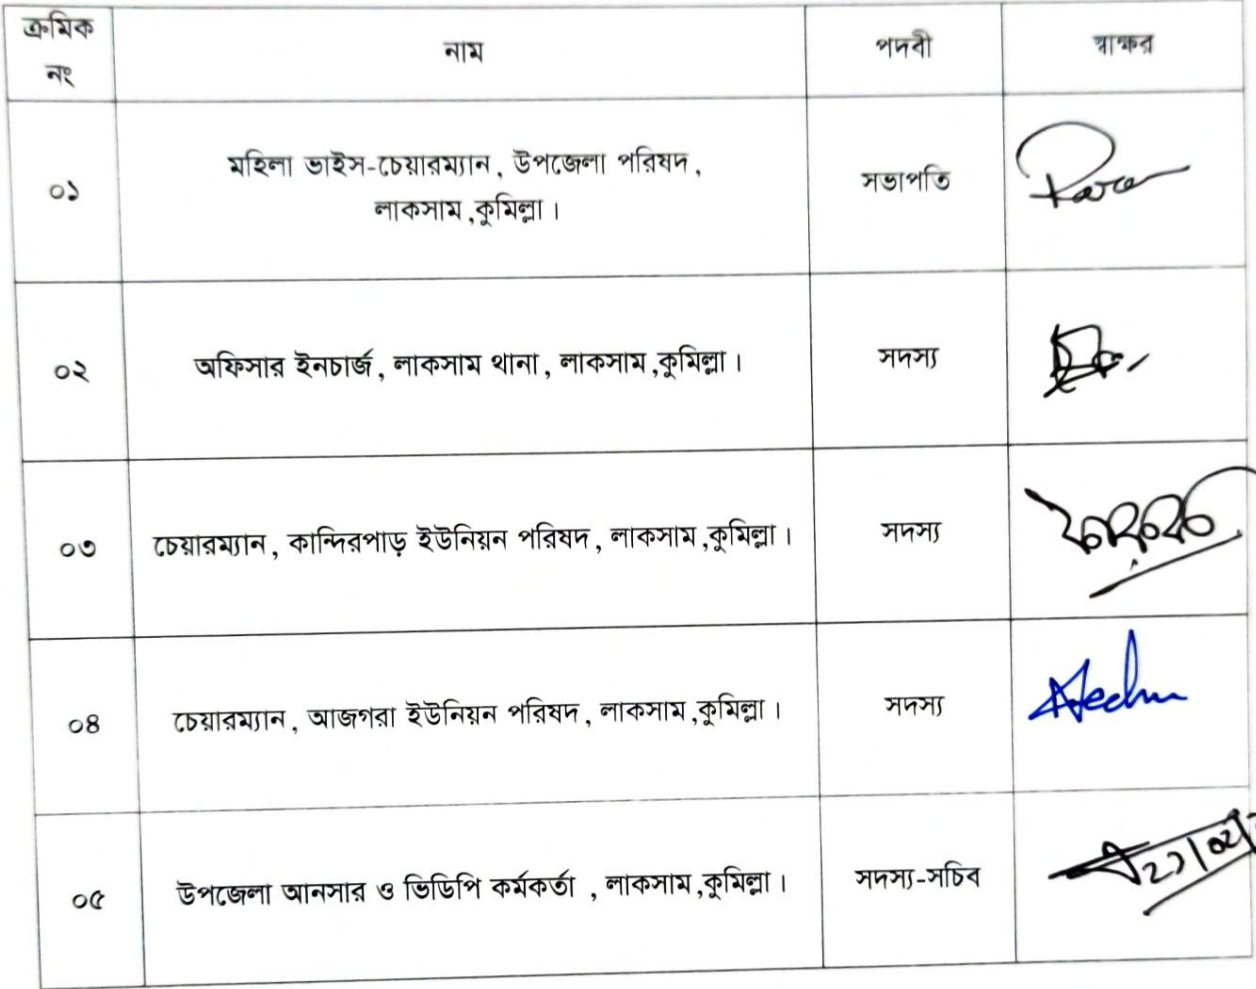 ক্রমিক নং নাম পদবী স্বাক্ষর
০১ মহিলা ভাইস-চেয়ারম্যান, উপজেলা পরিষদ, লাকসাম,কুমিল্লা। সভাপতি
০২ অফিসার ইনচার্জ, লাকসাম থানা, লাকসাম,কুমিল্লা। সদস্য
০৩ চেয়ারম্যান, কান্দিরপাড় ইউনিয়ন পরিষদ, লাকসাম,কুমিল্লা। সদস্য
০৪ চেয়ারম্যান, আজগরা ইউনিয়ন পরিষদ, লাকসাম,কুমিল্লা। সদস্য
০৫ উপজেলা আনসার ও ভিডিপি কর্মকর্তা , লাকসাম,কুমিল্লা। সদস্য-সচিব